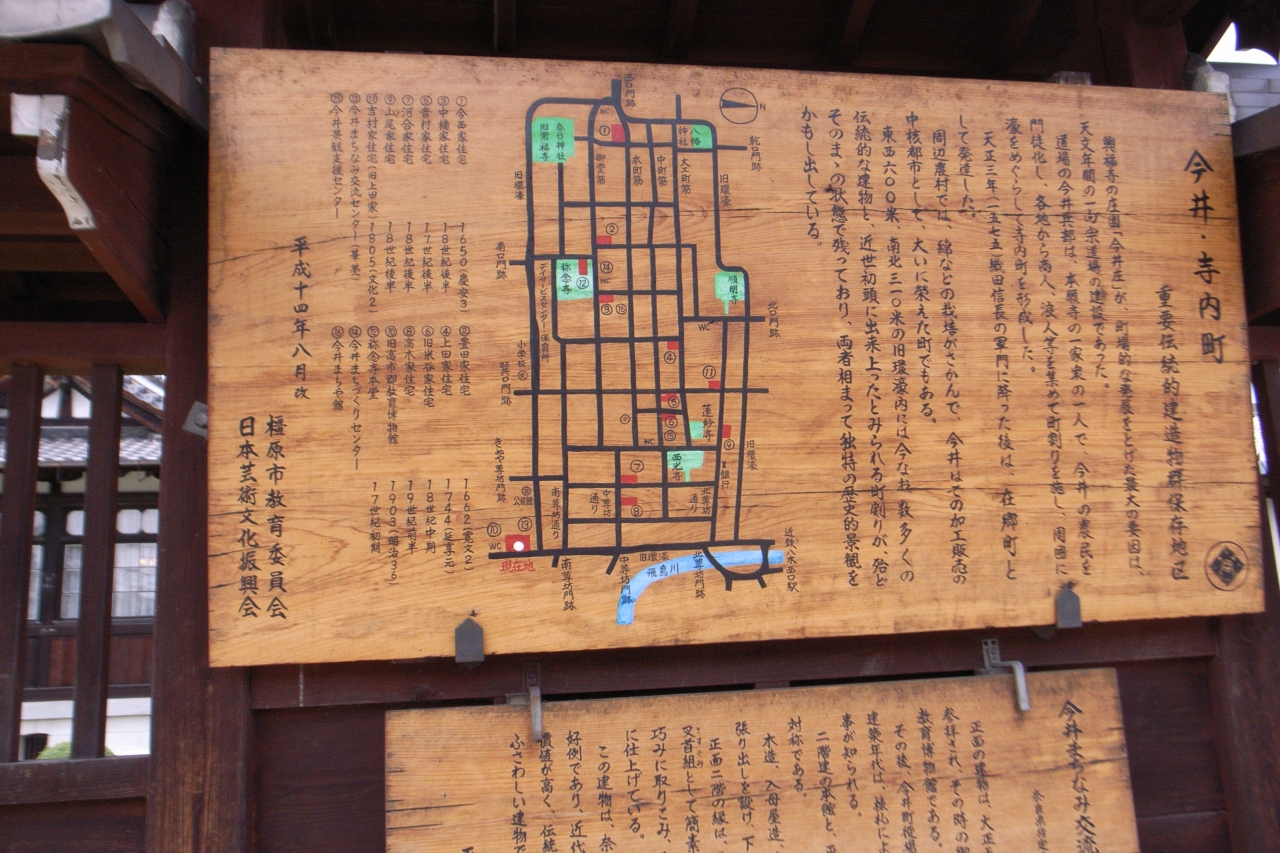 今井・寺内町
重要伝統的建造物群保存地区
興福寺の庄園「今井庄」が、町場的な発展をとげた最大の要因は、
天文年間の一向宗道場の建設であった。
道場の今井兵部は、本願寺の一家衆の一人で、今井の農民を
門徒化し、各地から商人、浪人等を集めて町割りを施し、周囲に
濠をめぐらして寺内町を形成した。
天正三年(一五七五)織田信長の軍門に降った後は、在郷町と
して発達した。
周辺農村では、綿などの栽培がさかんで、今井はその加工販売の
中核都市として、大いに栄えた町でもある。
東西六〇〇米、南北三一〇米の旧環濠内には今なお数多くの
伝統的な建物と、近世初頭に出来上ったとみられる町割りが、殆ど
そのまゝの状態で残っており、両者相まって独特の歴史的景観を
かもし出している。
N
西口門跡
乾口門跡
北口門跡
南口門跡
巽口門跡
きや尊坊門跡
南尊坊門跡
中尊坊門跡
北尊坊門跡
近鉄八木西口駅
春日神社
旧常福寺
八幡神社
御堂筋
本町筋
中町筋
大工町筋
旧環濠
旧環濠
旧環濠
旧環濠
称念寺
順明寺
蓮妙寺
西光寺
デイサービスセンター・保育所
小学校
公民館
銀行
南尊坊通り
中尊坊通り
北尊坊通り
飛鳥川
現在地
WC
WC
WC
WC
WC
①
②
③
④
⑤
⑥
⑦
⑧
⑨
⑩
⑪
⑫
⑬
⑭
⑮
⑯
①今西家住宅 1650(慶安3)
②豊田家住宅 1662(寛文2)
③中橋家住宅 18世紀後半
④上田家住宅 1744(延享元)
⑤音村家住宅 17世紀後半
⑥旧米谷家住宅 18世紀中期
⑦河合家住宅 18世紀後半
⑧高木家住宅 19世紀前半
⑨山尾家住宅 18世紀後半
⑩旧高市郡教育博物館 1903(明治36)
⑪吉村家住宅(旧上田家) 1805(文化2)
⑫称念寺本堂 17世紀初期
⑬今井まちなみ交流センター(華甍)
⑭今井まちづくりセンター
⑮今井景観支援センター
⑯今井まちや館
平成十四年八月改
橿原市教育委員会
日本芸術文化振興会
今井まちなみ交流
正面の建物は、大正
参拝され、その時の
教育博物館である。
その後、今井町役場
建築年代は、棟札によ
事が知られる。
二階建の本館と、平
対称である。
木造、入母屋造、
張り出しを設け、下
正面二階の縁は、
又首組として簡素
巧みに取りこみ、
に仕上げている。
この建物は、奈
好例であり、近代
価値が高く、伝統
ふさわしい建物で